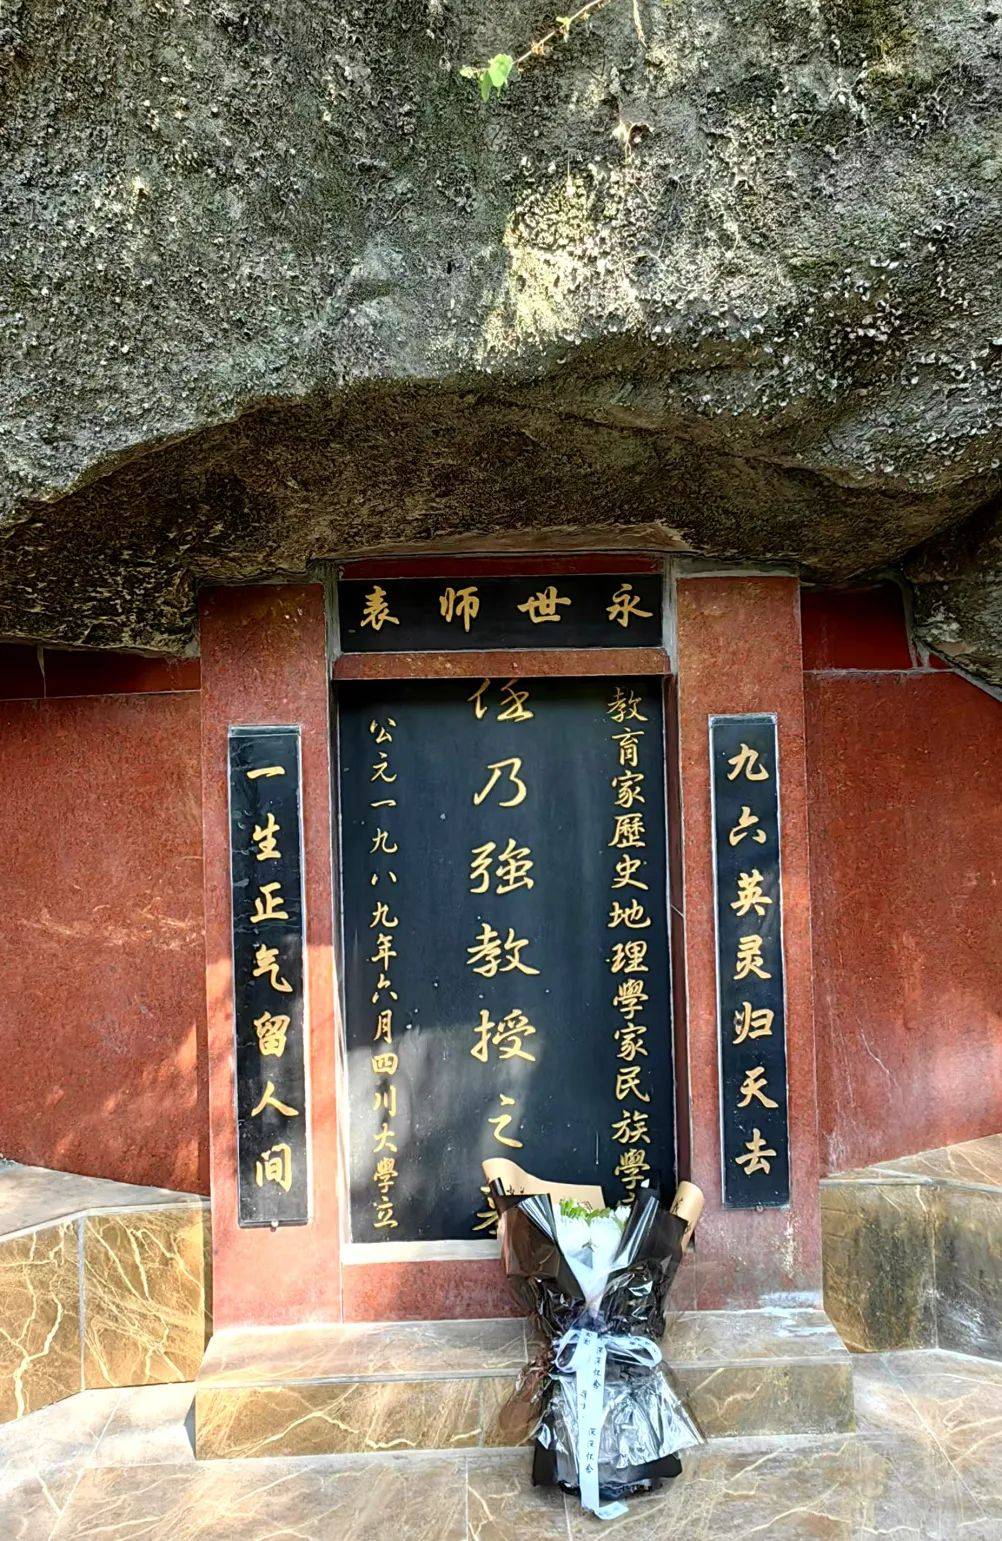 永世师表
教育家歷史地理學家民族學
任乃強教授之
公元一九八九年六月四川大學立
九六英灵归天去
一生正气留人间